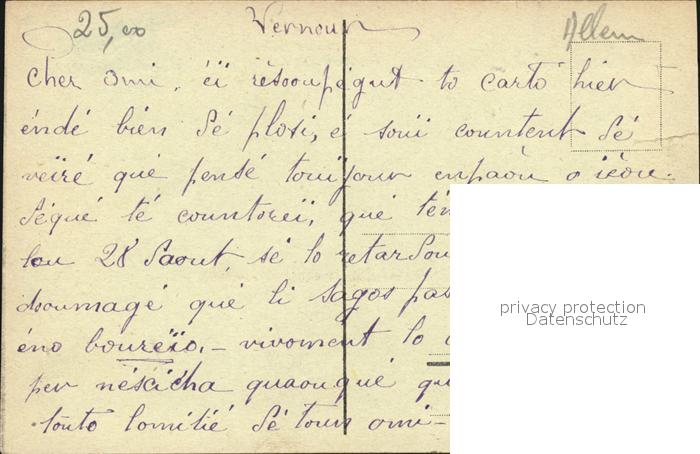 25,00 Vernoux Allem
Cher omi, éï réçoupégut to carto hier
éndé bién dé plosi, é souï countent dé
veïré qué pensé toujour enpaou o ïéou.
dégué té countoreï, qué tén
lou 28 d'aout, sé lo retardou
doumagé qué li sagos pas
éno boureïo, - vivomént lo
per néssicha quaouqué qu
touto lomitié dé toun omi-
privacy protection
Datenschutz